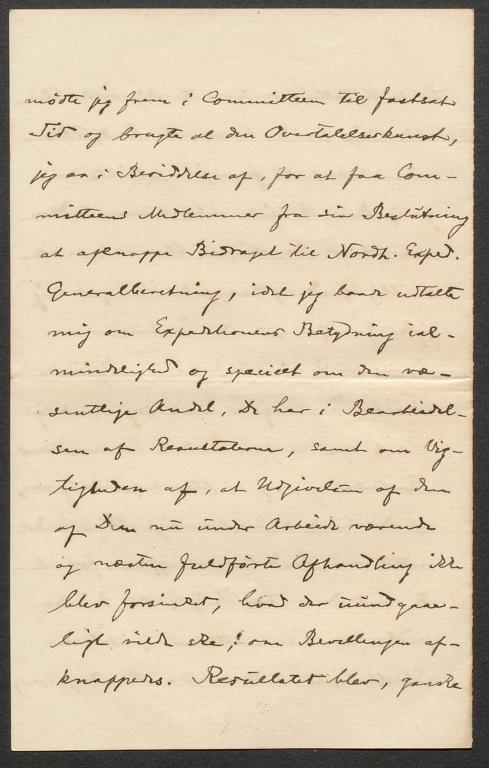 mødte jeg frem i Committeen til fastsat
Tid og brugte al den Overtalelseskunst,
jeg er i Besiddelse af, for at faa Com-
mitteens Medlemmer fra sin Beslutning
at afknappe Bidraget til Nordh. Exped.
Generalberetning, idet jeg baade udtalte
mig om Expeditionens Betydning i al-
mindelighed og specielt om den væ-
sentlige Andel, De har i Bearbeidel-
sen af Resultaterne, samt om Vig-
tigheden af, at Udgivelsen af den
af Dem nu under Arbeide værende
og næsten fuldførte Afhandling ikke
blev forsinket, hvad der uundgaae-
ligt vilde ske, om Bevillingen af-
knappedes. Resultatet blev, ganske